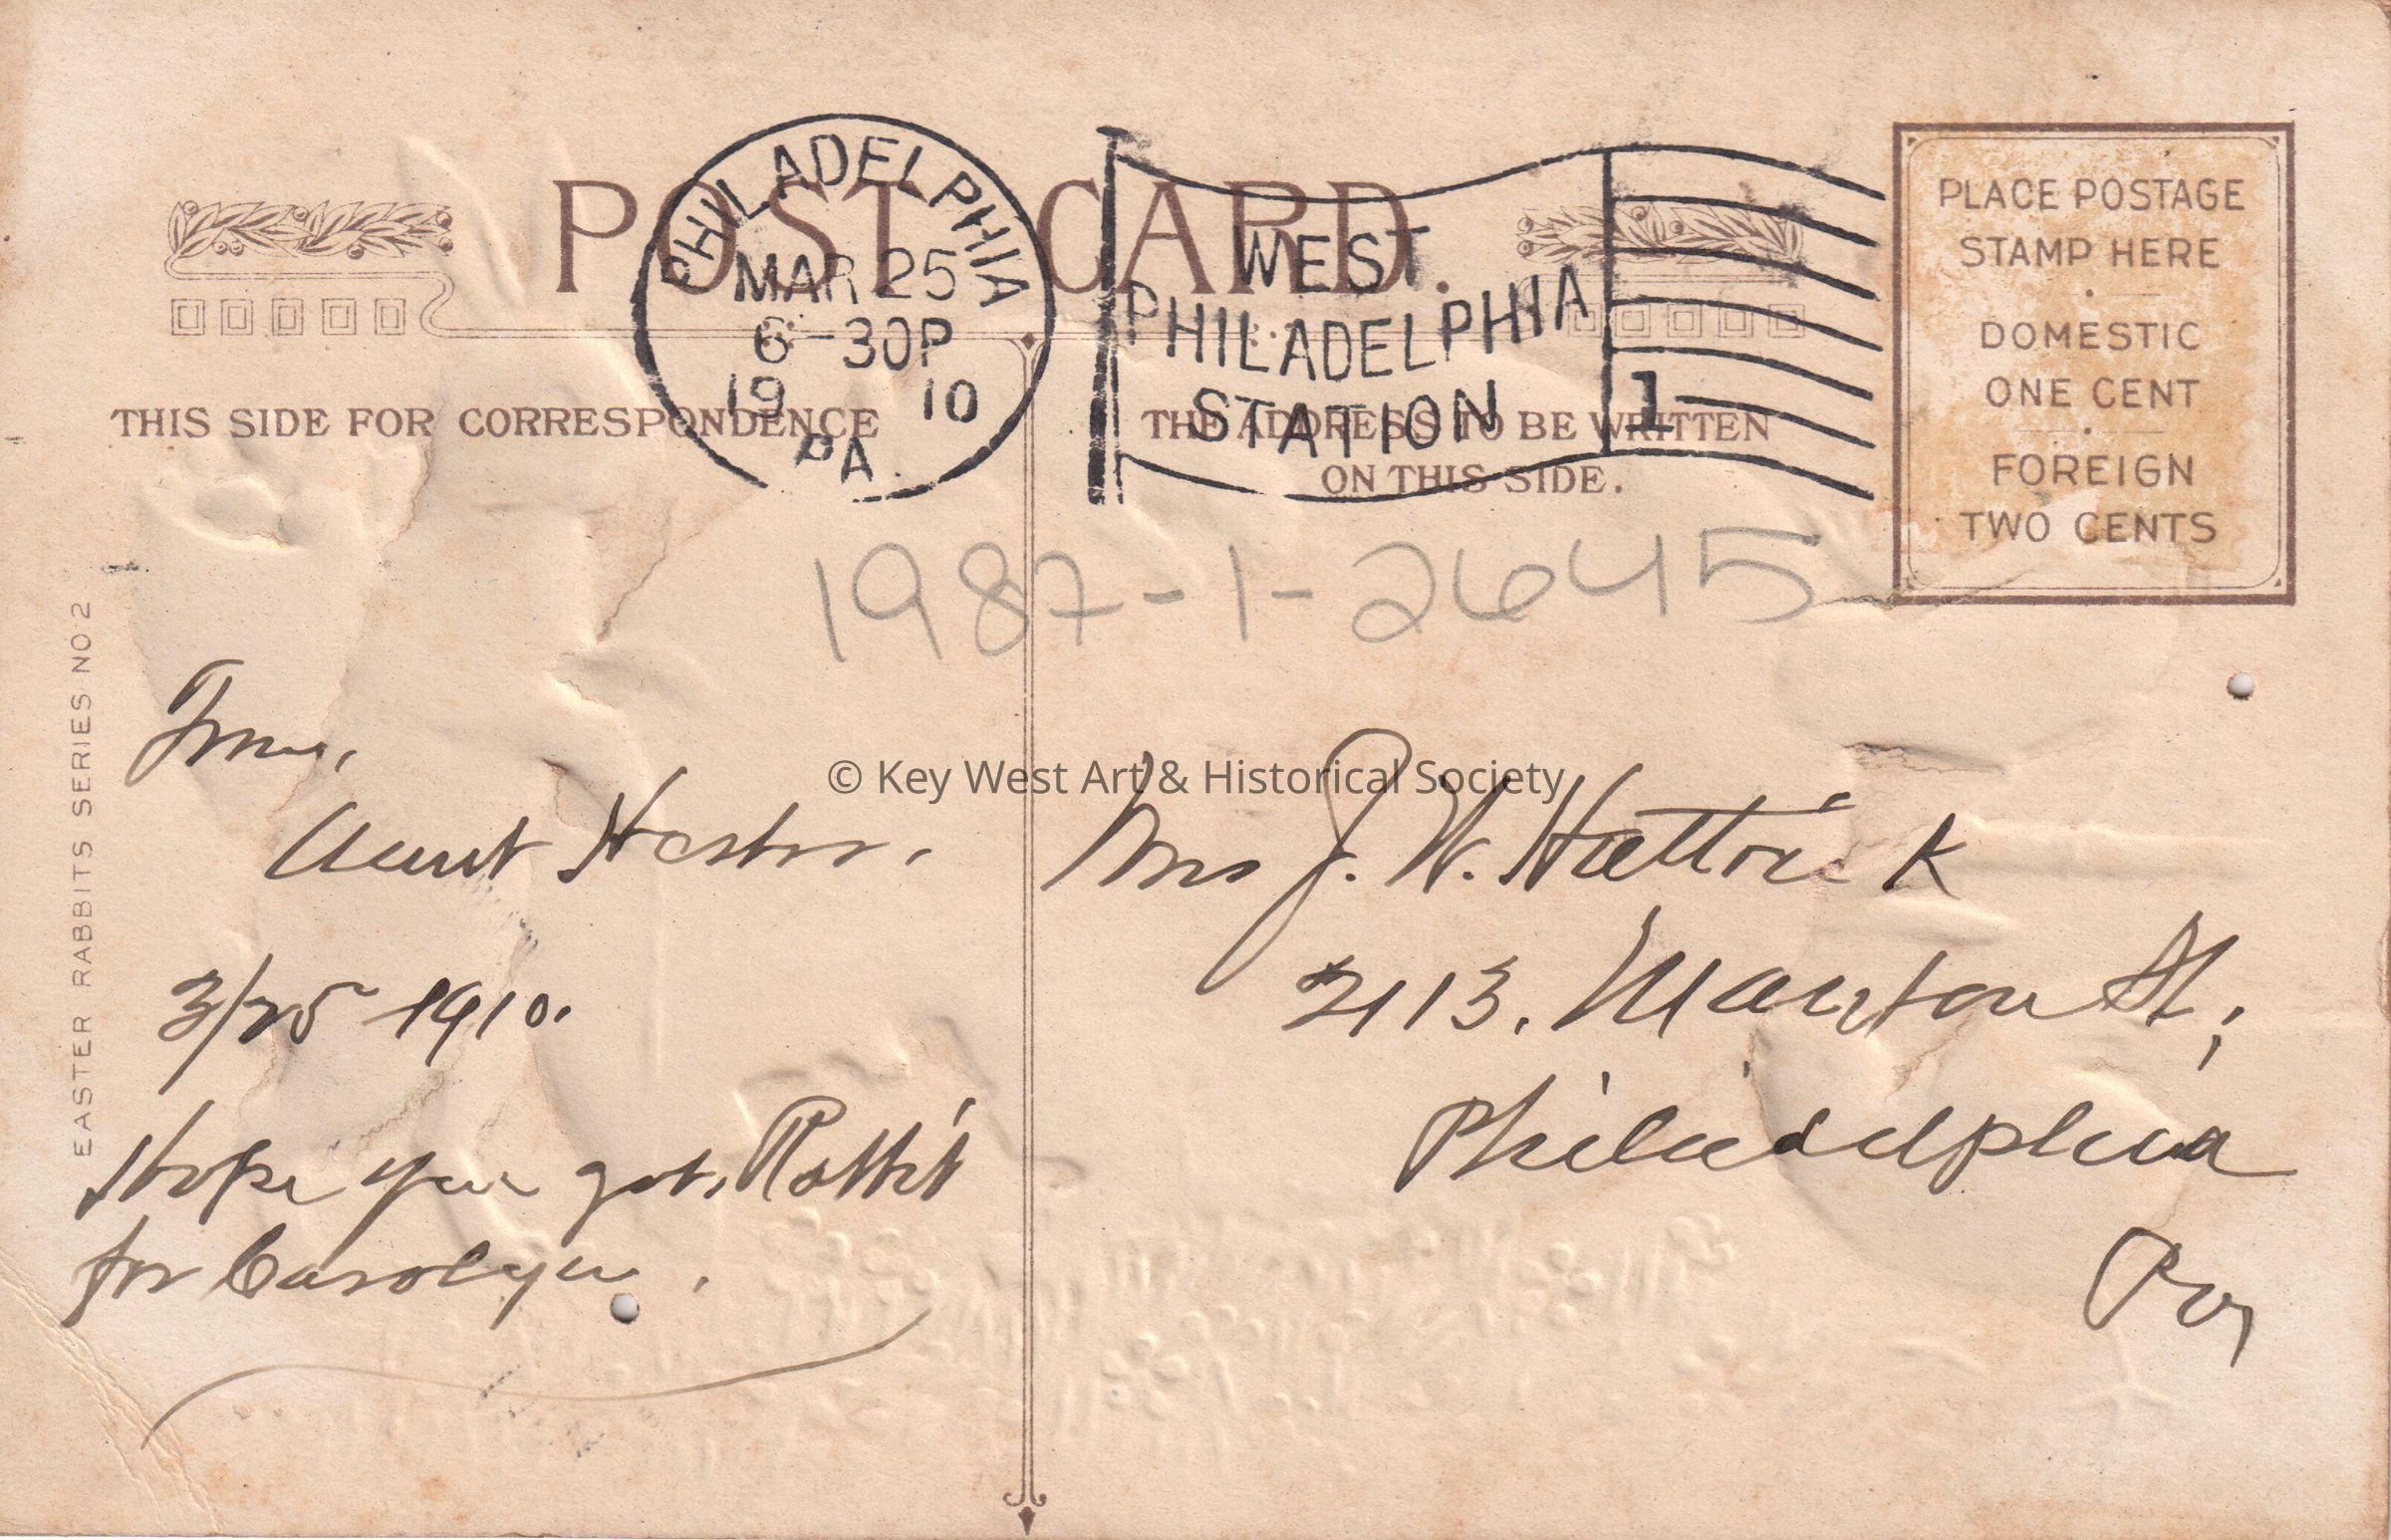 POST CARD.
PHILADELPHIA
MAR 25
6-30P
19 10
PA.
WEST
PHILADELPHIA
STATION
1
PLACE POSTAGE
STAMP HERE
DOMESTIC
ONE CENT
FOREIGN
TWO CENTS
THIS SIDE FOR CORRESPONDENCE
THE ADDRESS TO BE WRITTEN
ON THIS SIDE.
1987-1-2645
EASTER RABBITS SERIES NO 2
From,
Aunt Hester.
3/25 1910.
Hope you got, Rabbit
for Carolyn.
© Key West Art & Historical Society
Mrs J. W. Hattrick
2113. Manton St,
Philadelphia
Pa,